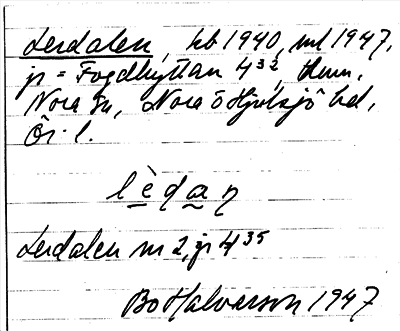 Lerdalen, hb 1940, ml 1947,
jr = Fogdhyttan 4³², hmn,
Nora sn, Nora o Hjulsjö bd,
Ör. l.
lèdan
Lerdalen nr 2, jr 4³⁵
Bo Halvarson 1947